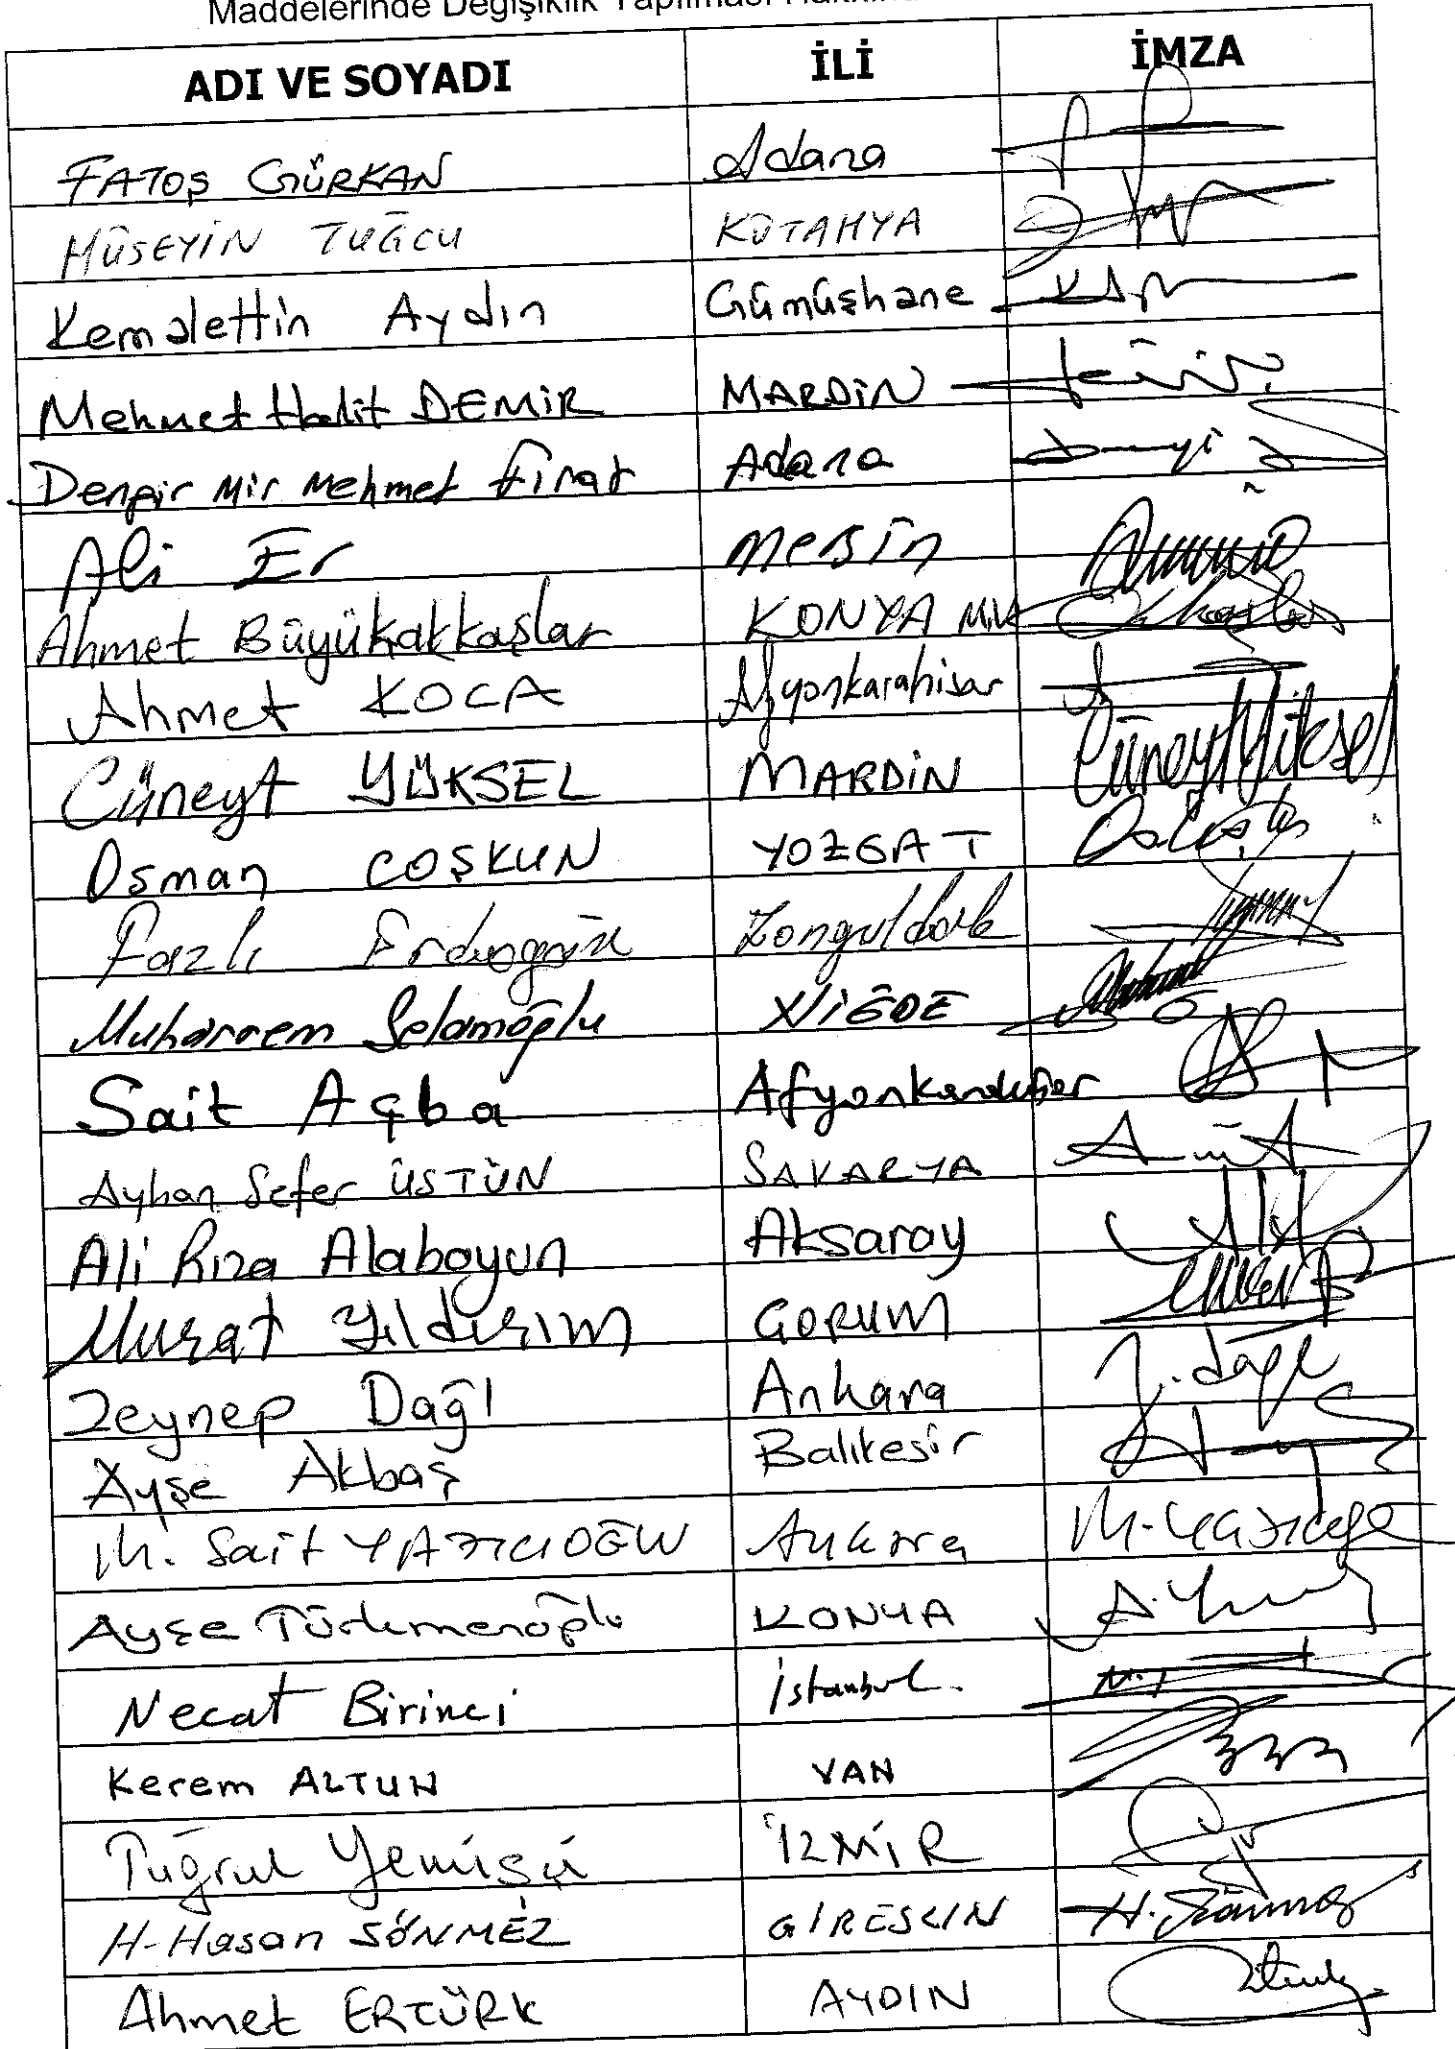 Maddelerinde Değişiklik Yapılması
ADI VE SOYADI İLİ İMZA
FATOŞ GÜRKAN Adana
HÜSEYİN TUĞCU KÜTAHYA
Kemalettin Aydın Gümüşhane
Mehmet Halit DEMİR MARDİN
Dengir Mir Mehmet Fırat Adana
Ali Er Mersin
Ahmet Büyükakkaşlar KONYA Mv
Ahmet KOCA Afyonkarahisar
Cüneyt YÜKSEL MARDİN Cüneyt Yüksel
Osman COŞKUN YOZGAT
Fazlı Erdoğan Zonguldak
Muharrem Selamoğlu NİĞDE
Sait Açba Afyonkarahisar
Ayhan Sefer ÜSTÜN SAKARYA
Ali Rıza Alaboyun Aksaray
Murat Yıldırım ÇORUM
Zeynep Dağı Ankara
Ayşe Akbaş Balıkesir
M. Sait YAZICIOĞLU Ankara
Ayşe Türkmenoğlu KONYA
Necat Birinci İstanbul.
Kerem ALTUN VAN
Tuğrul Yemişçi İZMİR
H. Hasan SÖNMEZ GİRESUN H. Sönmez
Ahmet ERTÜRK AYDIN